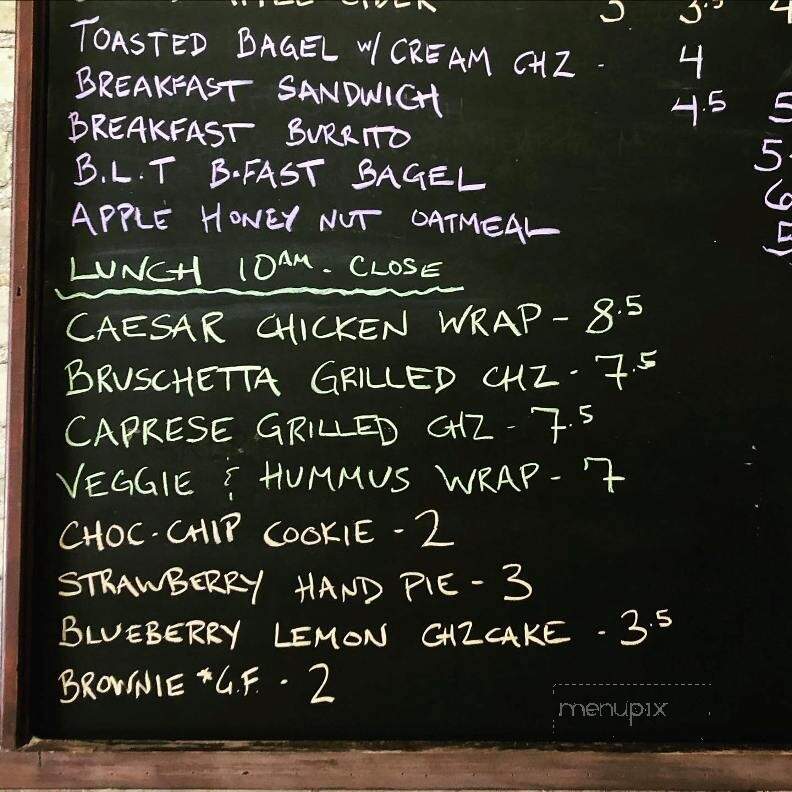 3 3.5 4
TOASTED BAGEL W/ CREAM CHZ - 4
BREAKFAST SANDWICH 4.5 5
BREAKFAST BURRITO 5.
B.L.T B.FAST BAGEL 6
APPLE HONEY NUT OATMEAL 5
LUNCH 10AM - CLOSE
CAESAR CHICKEN WRAP - 8.5
BRUSCHETTA GRILLED CHZ - 7.5
CAPRESE GRILLED CHZ - 7.5
VEGGIE & HUMMUS WRAP - 7
CHOC-CHIP COOKIE - 2
STRAWBERRY HAND PIE - 3
BLUEBERRY LEMON CHZCAKE - 3.5
BROWNIE *G.F. - 2
menupix